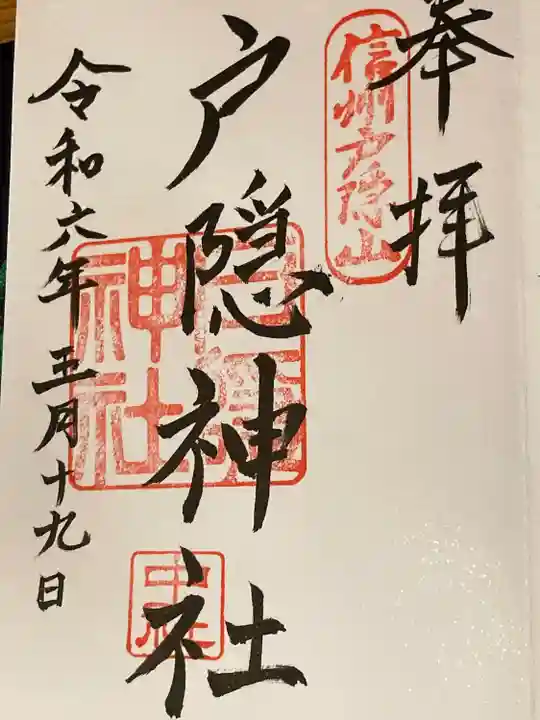 奉拝
信州戸隠山
戸隠神社
戸隠神社
中社
令和六年五月十九日